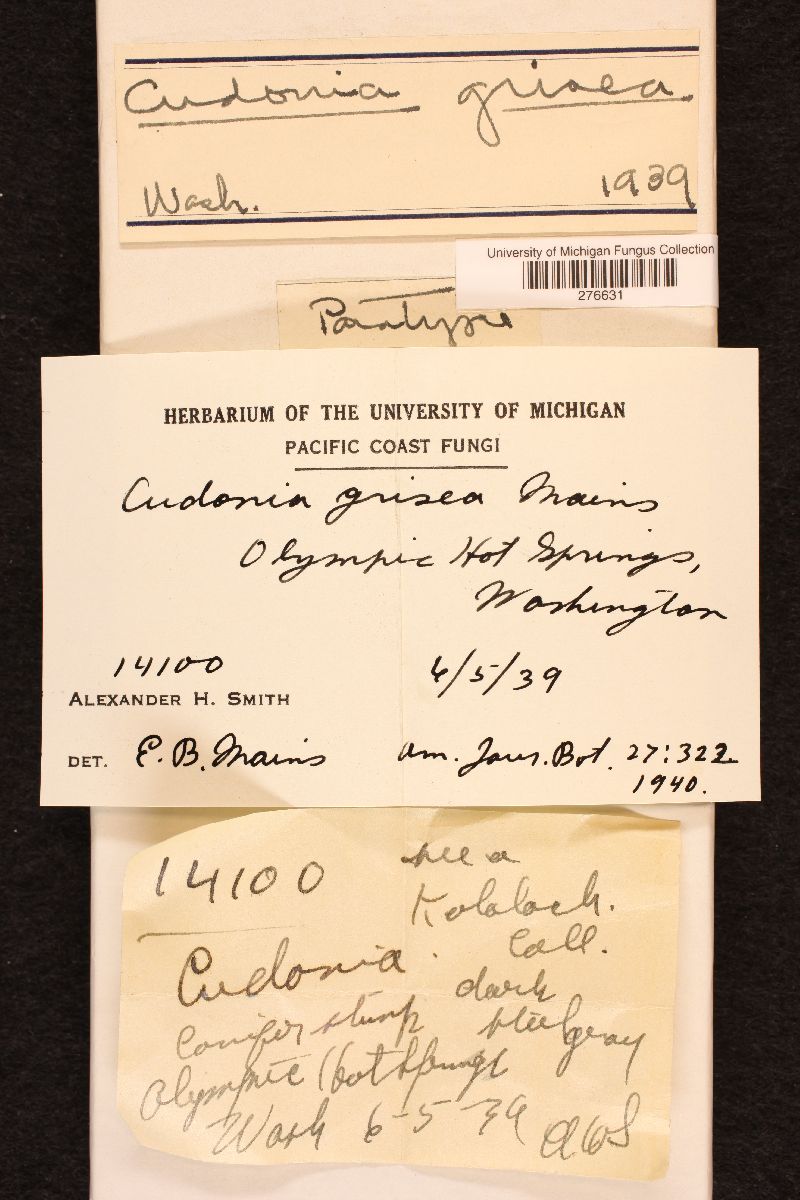 Cudonia grisea
Wash. 1939
University of Michigan Fungus Collection
276631
Paratype
HERBARIUM OF THE UNIVERSITY OF MICHIGAN
PACIFIC COAST FUNGI
Cudonia grisea Mains
Olympic Hot Springs,
Washington
14100 6/5/39
ALEXANDER H. SMITH
DET. E.B. Mains Am. Jour. Bot. 27:322.
1940.
14100 see a
Kalaloch.
Cudonia. Coll.
dark
Conifer stump steel gray
Olympic Hot Springs
Wash 6-5-39 AHS